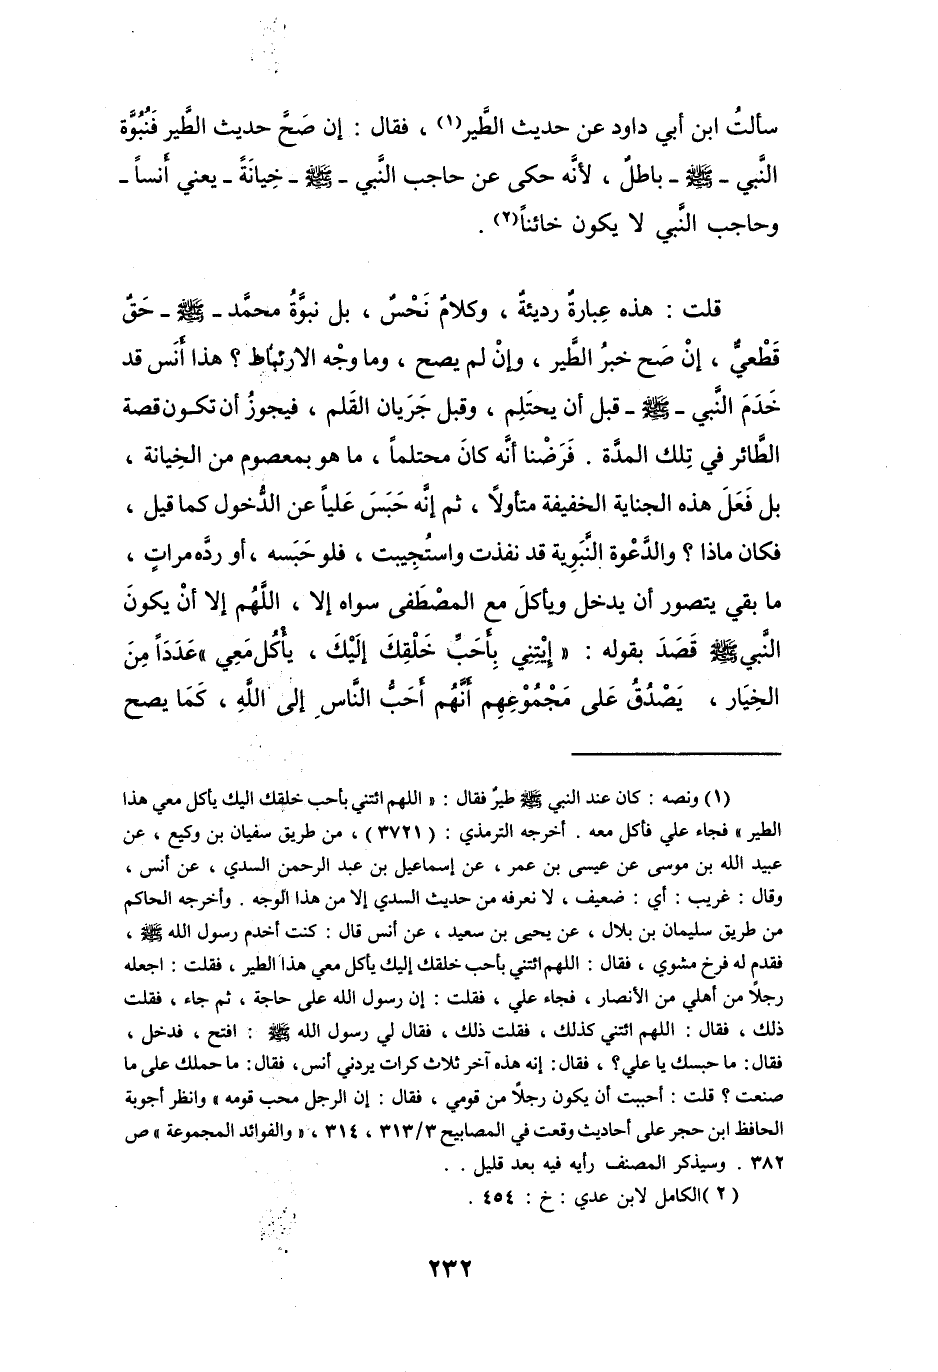 سألتُ ابن أبي داود عن حديث الطَّير(١) ، فقال : إن صَحَّ حديث الطَّير فَنُبُوَّة
النَّبي ـ ﷺ ـ باطلٌ ، لأنَّه حكى عن حاجب النَّبي ـ ﷺ ـ خِيانَةً ـ يعني أَنساً ـ
وحاجب النَّبي لا يكون خائناً(٢) .
قلت : هذه عِبارةٌ رديئةٌ ، وكلامٌ نَحْسٌ ، بل نبوَّةُ محمَّد ـ ﷺ ـ حَقٌ
قَطْعيٌّ ، إنْ صَح خبرُ الطَّير ، وإنْ لم يصح ، وما وجْه الارتباط ؟ هذا أَنَس قد
خَدَمَ النَّبي ـ ﷺ ـ قبل أن يحتَلِم ، وقبل جَرَيان القَلم ، فيجوزُ أن تكـون قصة
الطَّائر في تِلك المدَّة . فَرَضْنا أنَّه كانَ محتلماً ، ما هو بمعصوم من الخِيانة ،
بل فَعَلَ هذه الجناية الخفيفة متأولًا ، ثم إنَّه حَبَسَ عَلياً عن الدُّخول كما قيل ،
فكان ماذا ؟ والدَّعْوة النَّبَوِية قد نفذت واستُجيبت ، فلو حَبَسه ، أو ردَّه مراتٍ ،
ما بقي يتصور أن يدخل ويأكلَ مع المصْطَفى سواه إلا ، اللَّهُم إلا أنْ يكونَ
النَّبي ﷺ قَصَدَ بقوله : « إيْتِنِي بِأَحَبِّ خَلْقِكَ إِلَيْكَ ، يأْكُل مَعِي » عَدَدَاً مِنَ
الخِيَار ، يَصْدُقُ عَلى مَجْمُوْعِهِم أَنَّهُم أَحَبُّ النَّاسِ إِلى اللَّهِ ، كَمَا يصح
(١) ونصه : كان عند النبي ﷺ طيرٌ فقال : « اللهم ائتني بأحب خلقك اليك يأكل معي هذا
الطير » فجاء علي فأكل معه . أخرجه الترمذي : (٣٧٢١) ، من طريق سفيان بن وكيع ، عن
عبيد الله بن موسى عن عيسى بن عمر ، عن إسماعيل بن عبد الرحمن السدي ، عن أنس ،
وقال : غريب : أي : ضعيف ، لا نعرفه من حديث السدي إلا من هذا الوجه . وأخرجه الحاكم
من طريق سليمان بن بلال ، عن يحيى بن سعيد ، عن أنس قال : كنت أخدم رسول الله ﷺ ،
فقدم له فرخ مشوي ، فقال : اللهم ائتني بأحب خلقك إليك يأكل معي هذا الطير ، فقلت : اجعله
رجلًا من أهلي من الأنصار ، فجاء علي ، فقلت : إن رسول الله على حاجة ، ثم جاء ، فقلت
ذلك ، فقال : اللهم ائتني كذلك ، فقلت ذلك ، فقال لي رسول الله ﷺ : افتح ، فدخل ،
فقال : ما حبسك يا علي؟ ، فقال : إنه هذه آخر ثلاث كرات يردني أنس ، فقال : ما حملك على ما
صنعت ؟ قلت : أحببت أن يكون رجلًا من قومي ، فقال : إن الرجل محب قومه » وانظر أجوبة
الحافظ ابن حجر على أحاديث وقعت في المصابيح ٣١٣/٣ ، ٣١٤ ، « والفوائد المجموعة » ص
٣٨٢ . وسيذكر المصنف رأيه فيه بعد قليل . .
(٢) الكامل لابن عدي : خ : ٤٥٤ .
٢٣٢